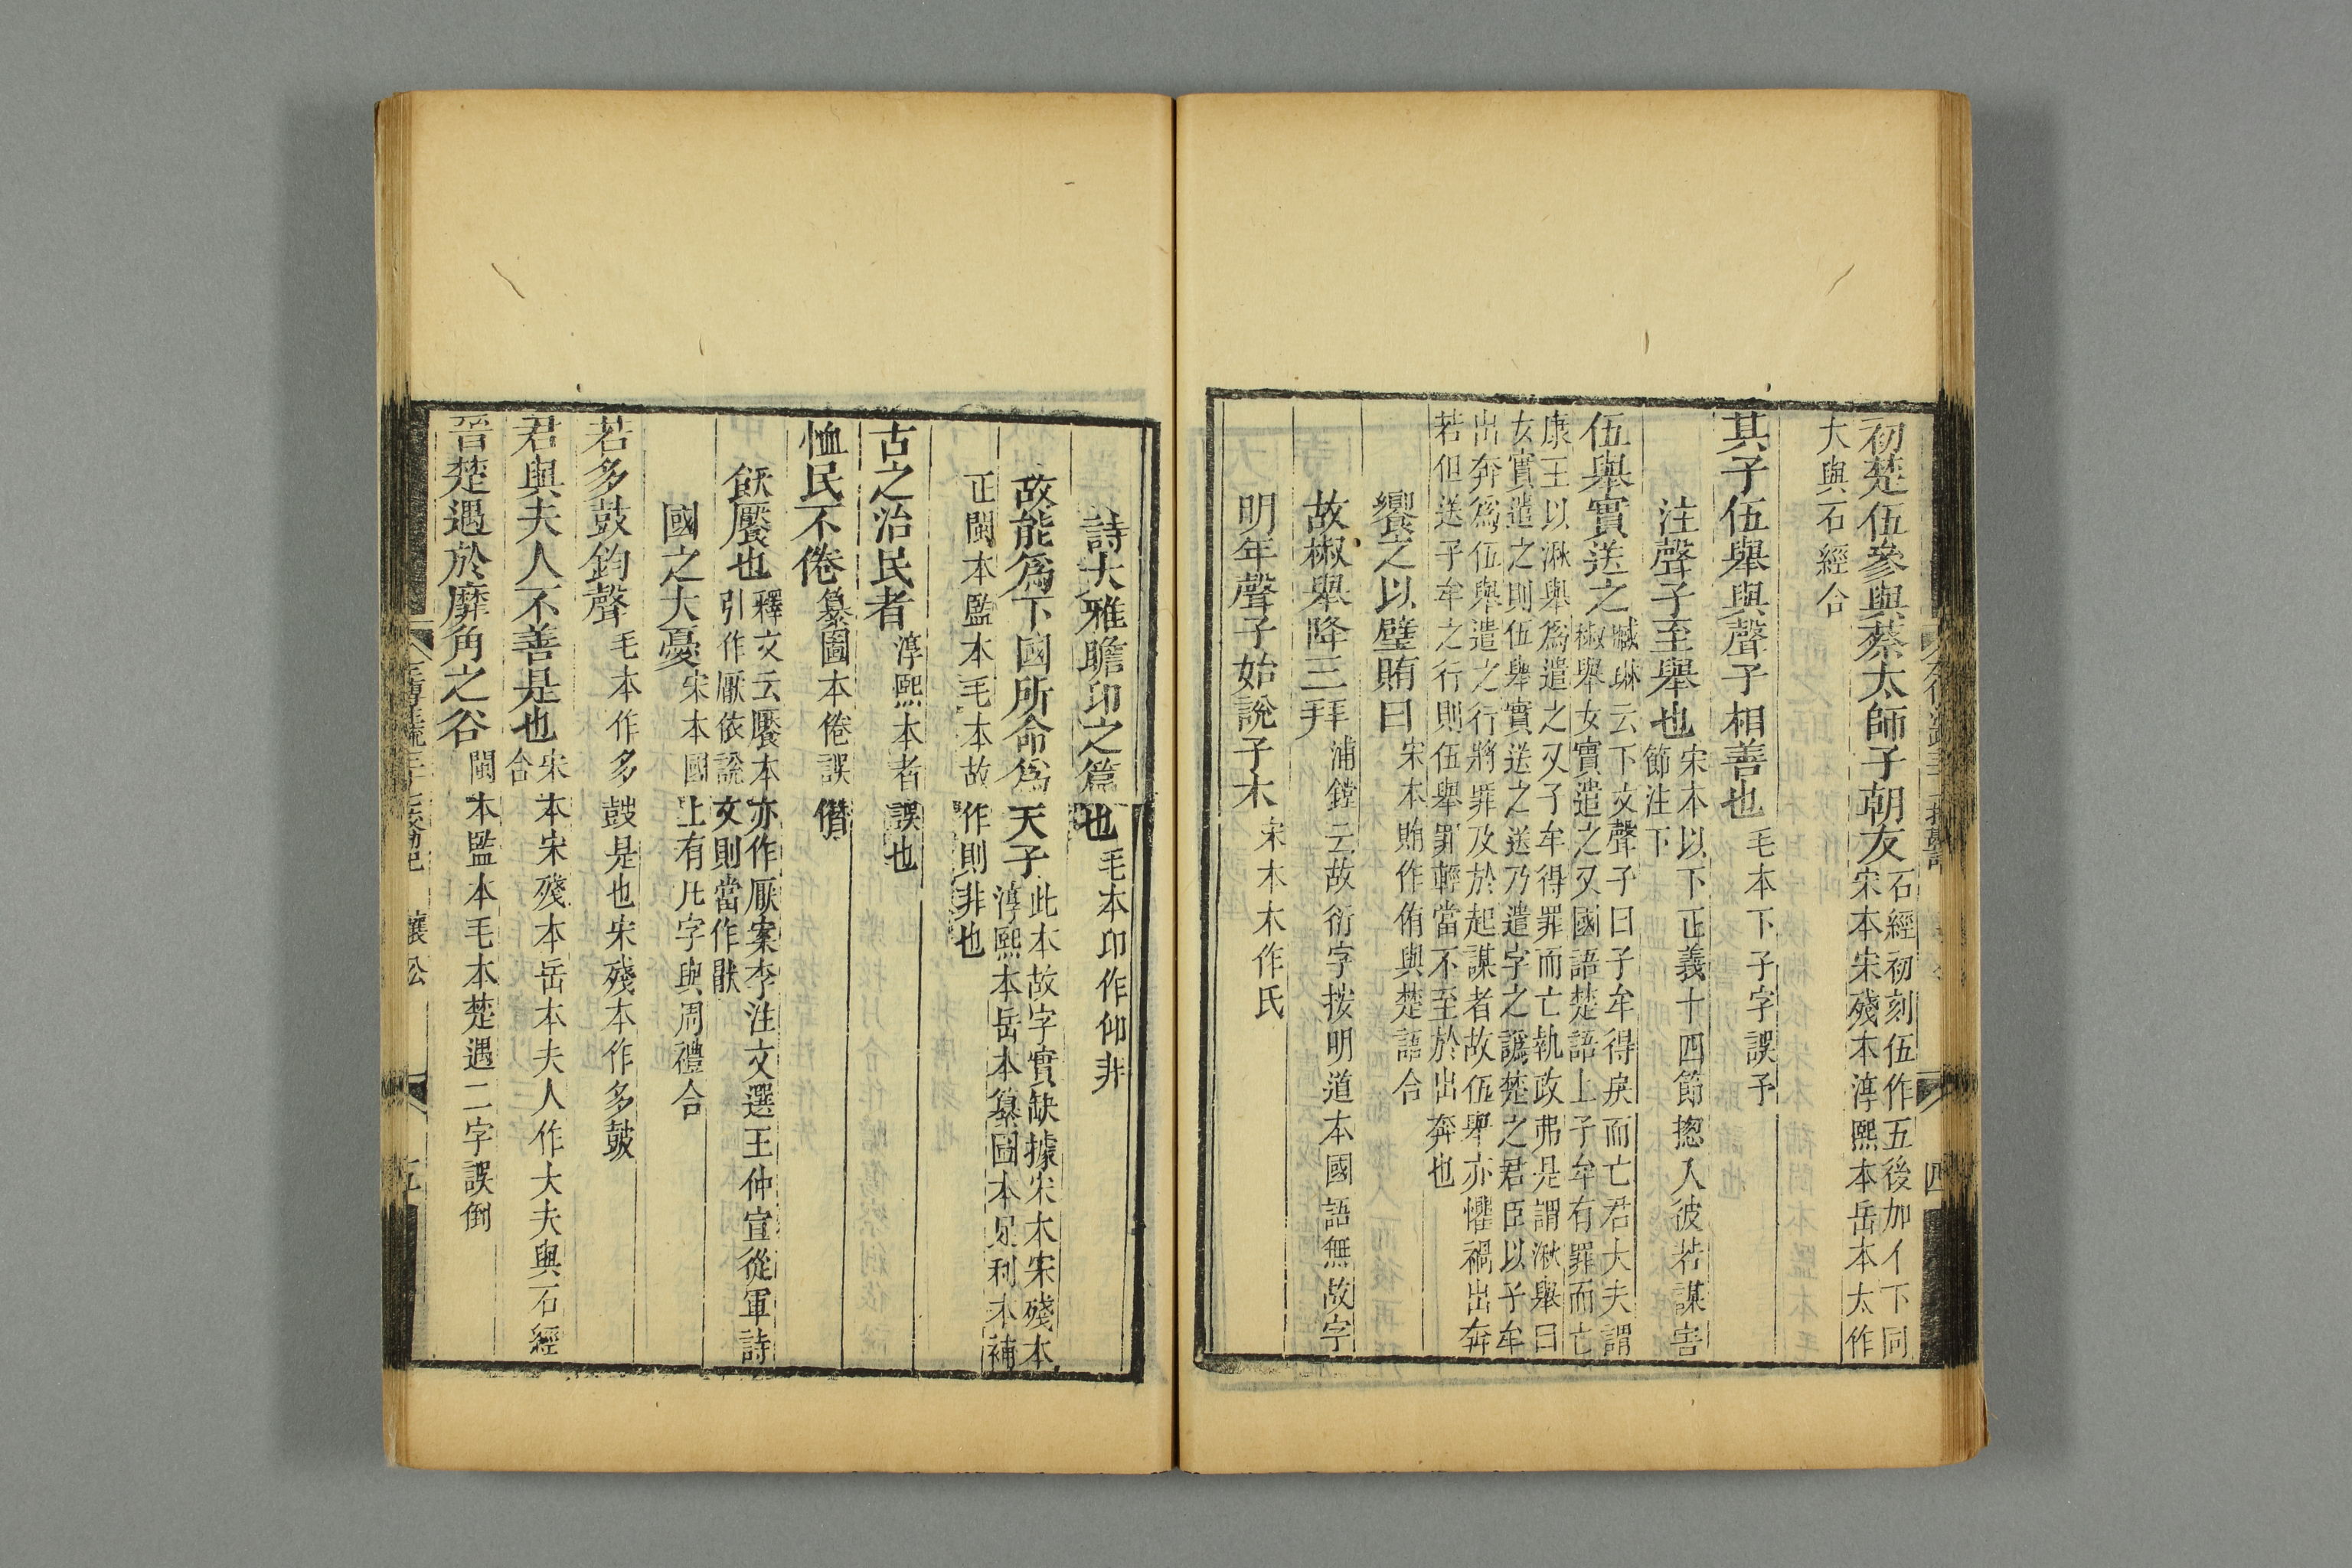 初楚伍參與蔡太師子朝友石經初刻伍作五後加亻下同
宋本宋殘本淳熙本岳本太作
大與石經合
其子伍舉與聲子相善也毛本下子字誤予
注聲子至舉也宋本以下正義十四節揔入彼若謀害
節注下
伍舉實送之臧琳云下文聲子曰子牟得戾而亡君大夫謂
椒舉女實遣之又國語楚語上子牟有罪而亡
康王以湫舉爲遣之又子牟得罪而亡執政弗是謂湫舉曰
女實遣之則伍舉實送之送乃遣字之譌楚之君臣以子牟
出奔爲伍舉遣之行將罪及於起謀者故伍舉亦懼禍出奔
若但送子牟之行則伍舉罪輕當不至於出奔也
饗之以璧賄曰宋本賄作侑與楚語合
故椒舉降三拜浦鏜云故衍字按明道本國語無故字
明年聲子始說子木宋本木作氏
詩大雅瞻卬之篇也毛本卬作仰非
故能爲下國所命爲天子此本故字實缺據宋本宋殘本
淳熙本岳本纂圖本足利本補
正閩本監本毛本故作則非也
古之治民者淳熙本者誤也
恤民不倦纂圖本倦誤僣
飫饜也釋文云饜本亦作厭案李注文選王仲宣從軍詩
引作厭依說文則當作猒
國之大憂宋本國上有凡字與周禮合
若多鼓鈞聲毛本作多鼓是也宋殘本作多皷
君與夫人不善是也宋本宋殘本岳本夫人作大夫與石經
合
晉楚遇於靡角之谷閩本監本毛本楚遇二字誤倒
襄公
五
四